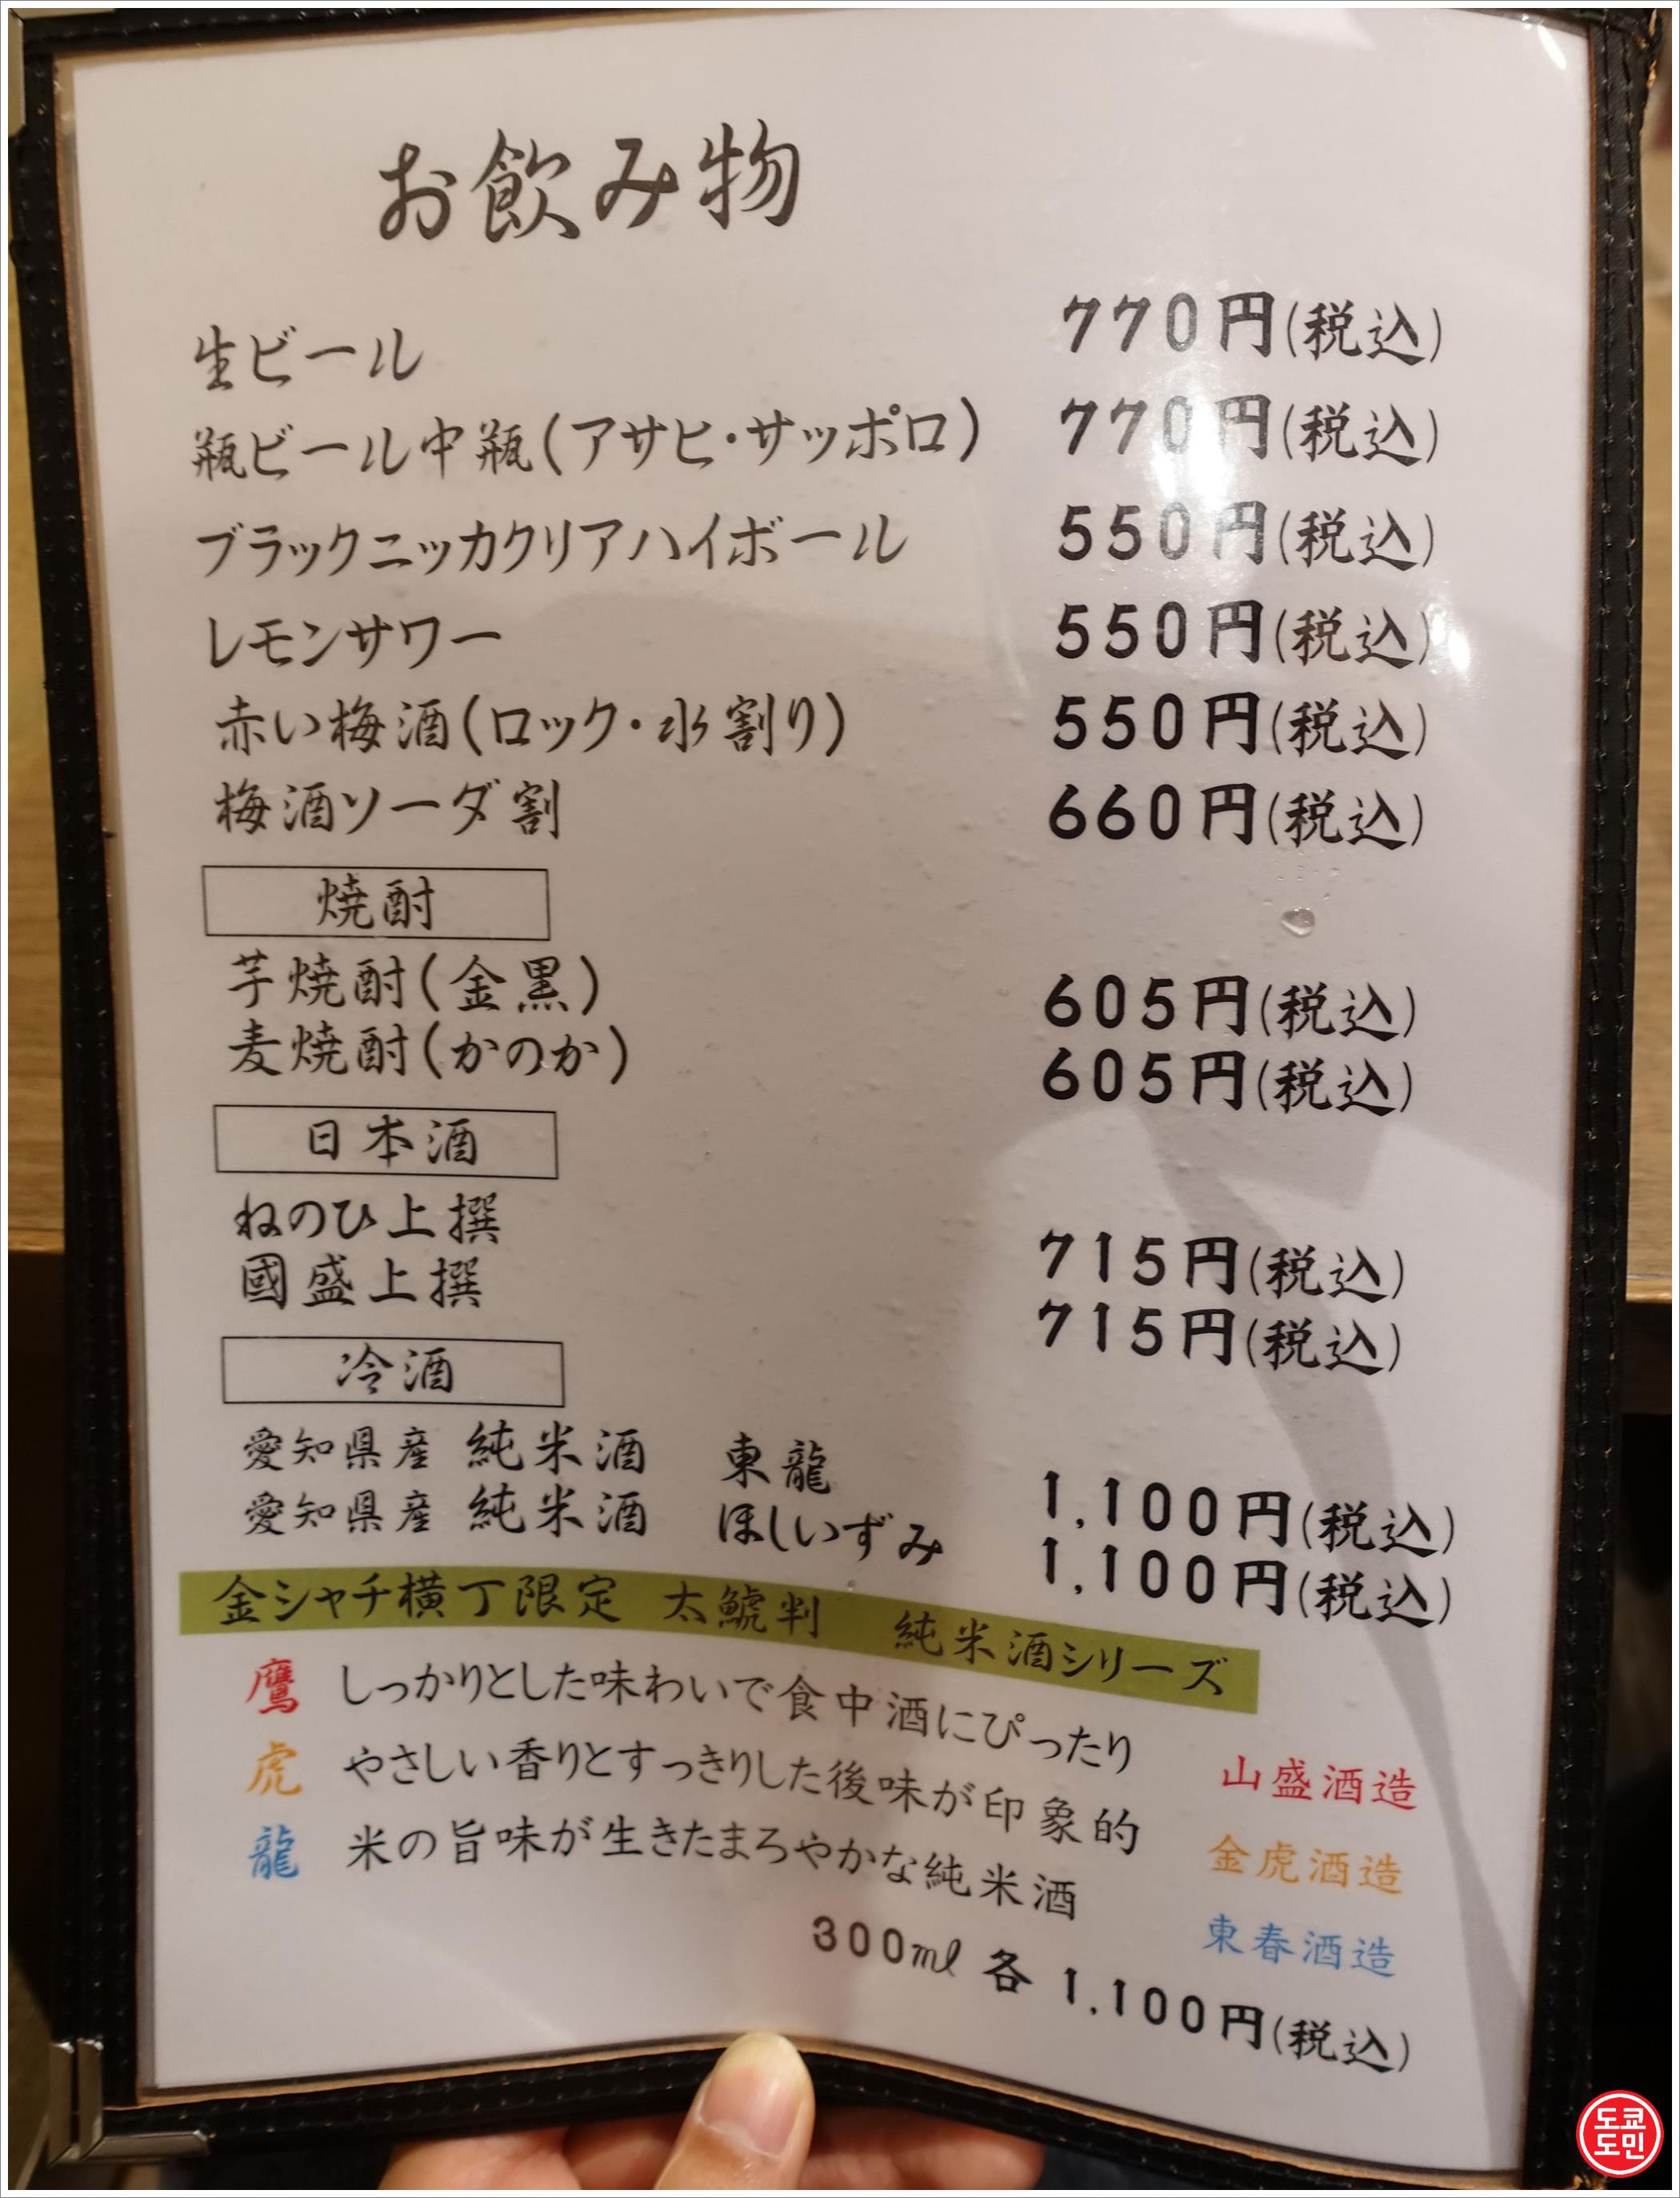 お飲み物
生ビール 770円(税込)
瓶ビール中瓶(アサヒ・サッポロ) 770円(税込)
ブラックニッカクリアハイボール 550円(税込)
レモンサワー 550円(税込)
赤い梅酒(ロック・水割り) 550円(税込)
梅酒ソーダ割 660円(税込)
焼酎
芋焼酎(金黒) 605円(税込)
麦焼酎(かのか) 605円(税込)
日本酒
ねのひ上撰 715円(税込)
國盛上撰 715円(税込)
冷酒
愛知県産 純米酒 東龍 1,100円(税込)
愛知県産 純米酒 ほしいずみ 1,100円(税込)
金シャチ横丁限定 太鯱判 純米酒シリーズ
鷹 しっかりとした味わいで食中酒にぴったり 山盛酒造
虎 やさしい香りとすっきりした後味が印象的 金虎酒造
龍 米の旨味が生きたまろやかな純米酒 東春酒造
300ml 各 1,100円(税込)
도쿄
도민